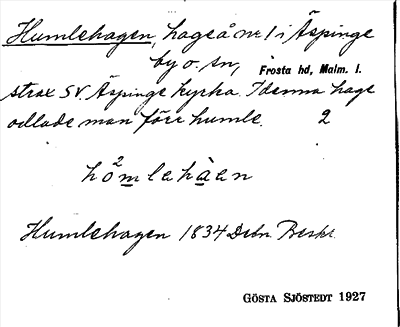 Humlehagen, hage å nr 1 i Äspinge
by o. sn, Frosta hd, Malm. l.
strax SV. Äspinge kyrka. I denna hage
odlade man förr humle. 2
hò²mlehàen
Humlehagen 1834 Debn Beskr.
GÖSTA SJÖSTEDT 1927